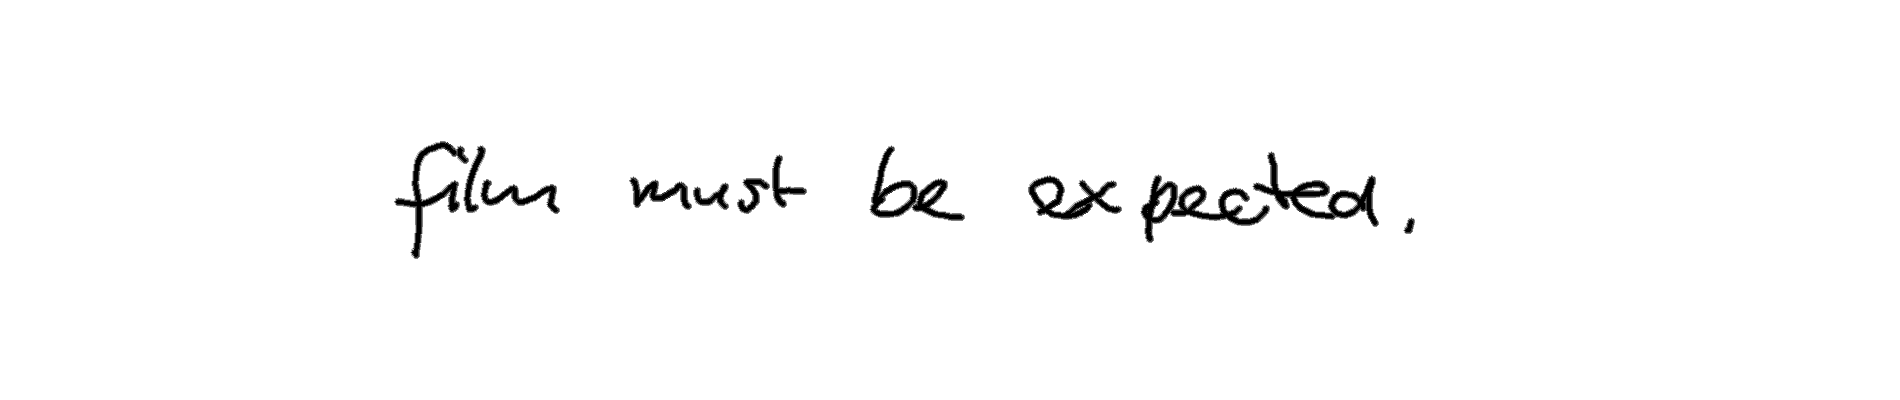 film must be expected.